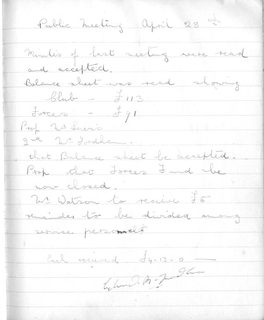 Public Meeting April 23rd
Minutes of last meeting were read
and accepted.
Balance sheet was read showing
Club - £113
Forces - £91
Prop Mr
2nd Mr Fordham
that Balance sheet be accepted.
Prop that Forces Fund be
now closed.
Mr Watson to receive £5
remainder to be divided among
service personnel
Cash received £4-12-0